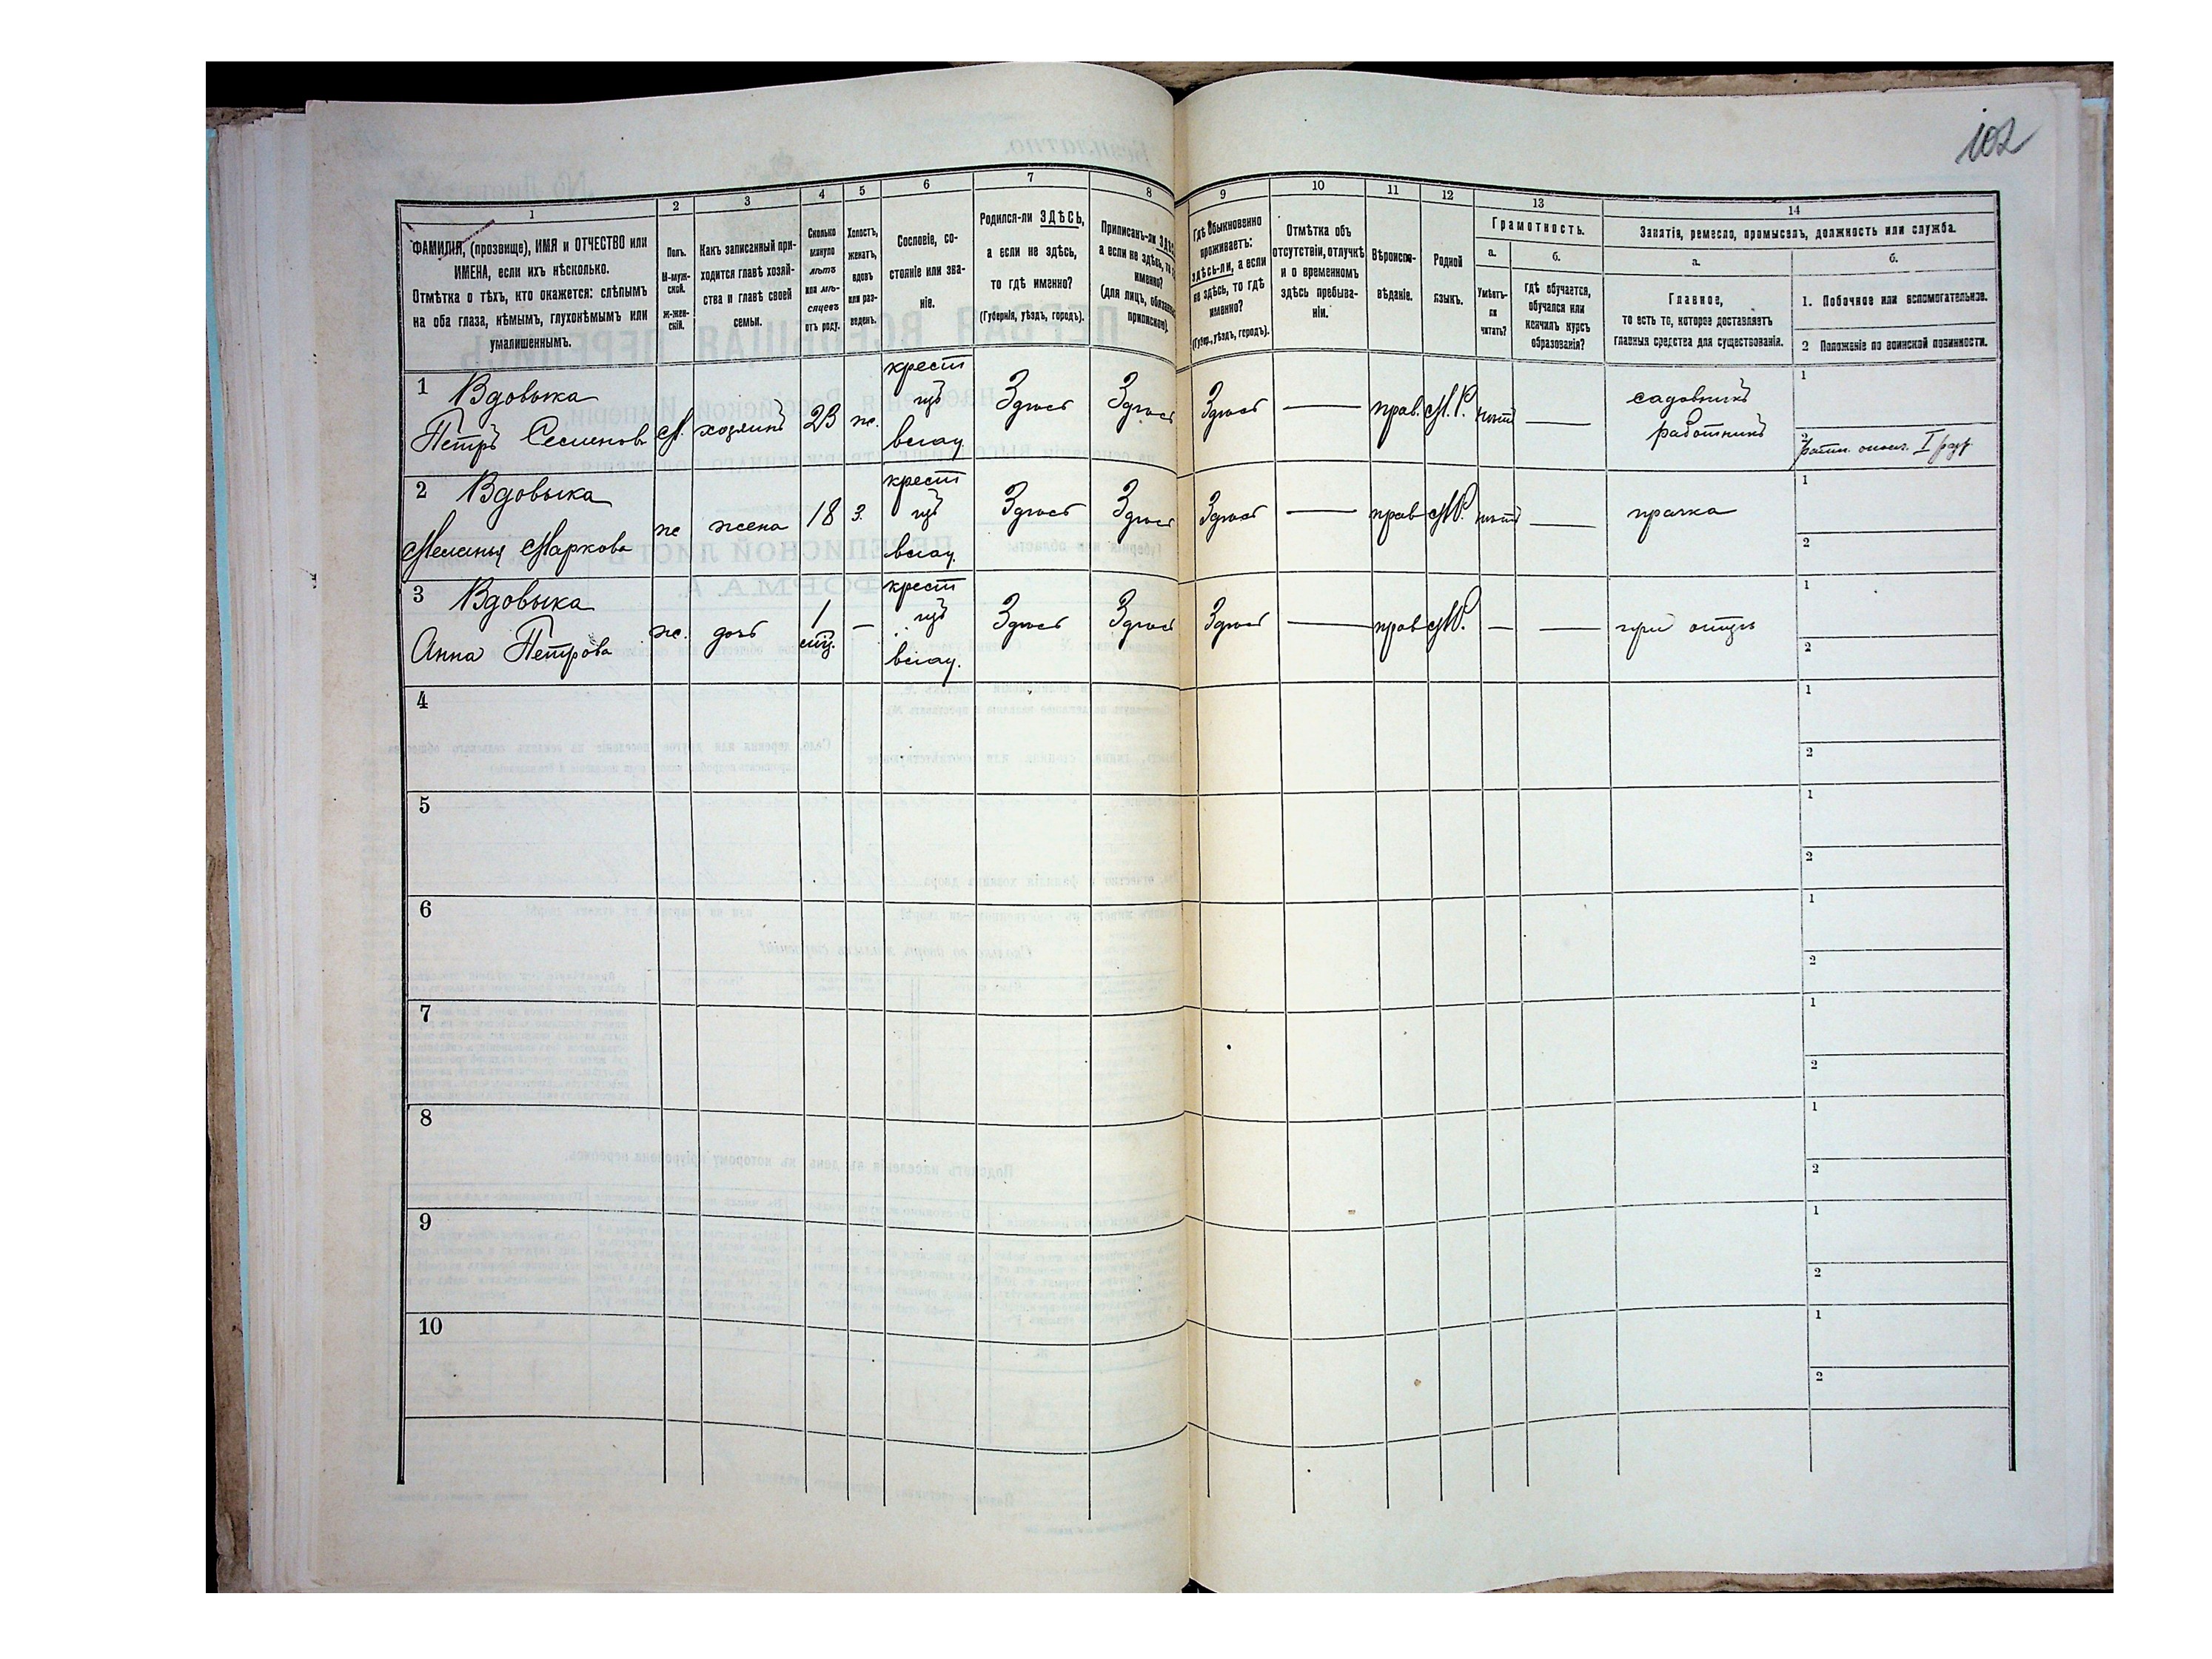 102
1 2 3 4 5 6 7 8 9 10 11 12 13 14
ФАМИЛІЯ, (прозвище), ИМЯ и ОТЧЕСТВО или
ИМЕНА, если ихъ нѣсколько.
Отмѣтка о тѣхъ, кто окажется: слѣпымъ
на оба глаза, нѣмымъ, глухонѣмымъ или
умалишеннымъ.
Полъ.
М-муж-
ской.
Ж-жен-
скій.
Какъ записанный при-
ходится главѣ хозяй-
ства и главѣ своей
семьи.
Сколько
минуло
лѣтъ
или мѣ-
сяцевъ
отъ роду.
Холостъ,
женатъ,
вдовъ
или раз-
веденъ.
Сословіе, со-
стояніе или зва-
ніе.
Родился-ли ЗДѢСЬ,
а если не здѣсь,
то гдѣ именно?
(Губернія, уѣздъ, городъ).
Приписанъ-ли
а если не здѣсь, то
именно?
(для лицъ,
Гдѣ Обыкновенно
проживаетъ:
здѣсь-ли, а если
не здѣсь, то гдѣ
именно?
(Губер., уѣздъ, городъ).
Отмѣтка объ
отсутствіи, отлучкѣ
и о временномъ
здѣсь пребыва-
ніи.
Вѣроиспо-
вѣданіе.
Родной
языкъ.
Грамотность.
а.
Умѣетъ-
ли
читать?
б.
гдѣ обучается,
обучался или
кончилъ курсъ
образованія?
Занятія, ремесло, промыселъ, должность или служба.
а.
Главное,
то есть то, которое доставляетъ
главныя средства для существованія.
б.
1. Побочное или вспомогательное.
2 Положеніе по воинской повинности.
1 Вдовыка
Петръ Семенов М. хозяинъ 23 ж. крест Здѣсь Здѣсь Здѣсь — прав. М.Р. нѣтъ — садовникъ 1
работникъ
2 ратн. ополч. I разр.
2 Вдовыка
Меланья Маркова ж жена 18 з. крест Здѣсь Здѣсь Здѣсь — прав М.Р. нѣтъ — прачка 1
2
3 Вдовыка
Анна Петрова ж. дочь 1 — крест Здѣсь Здѣсь Здѣсь — прав М.Р. — — при отцѣ 1
2
4 1
2
5 1
2
6 1
2
7 1
2
8 1
2
9 1
2
10 1
2